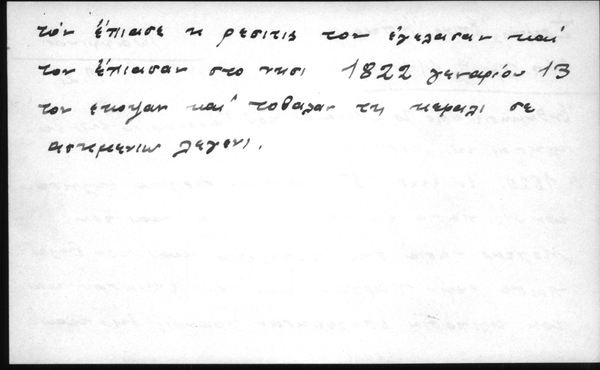 τόν έπιασε κ ρεσιτις τον εγελασαν καί
τον έπιασαν στο νησι 1822 γεναρίου 13
τον εκοψαν καί τοβαλαν τη κεφαλι σε
ασημενιω λεγενι.